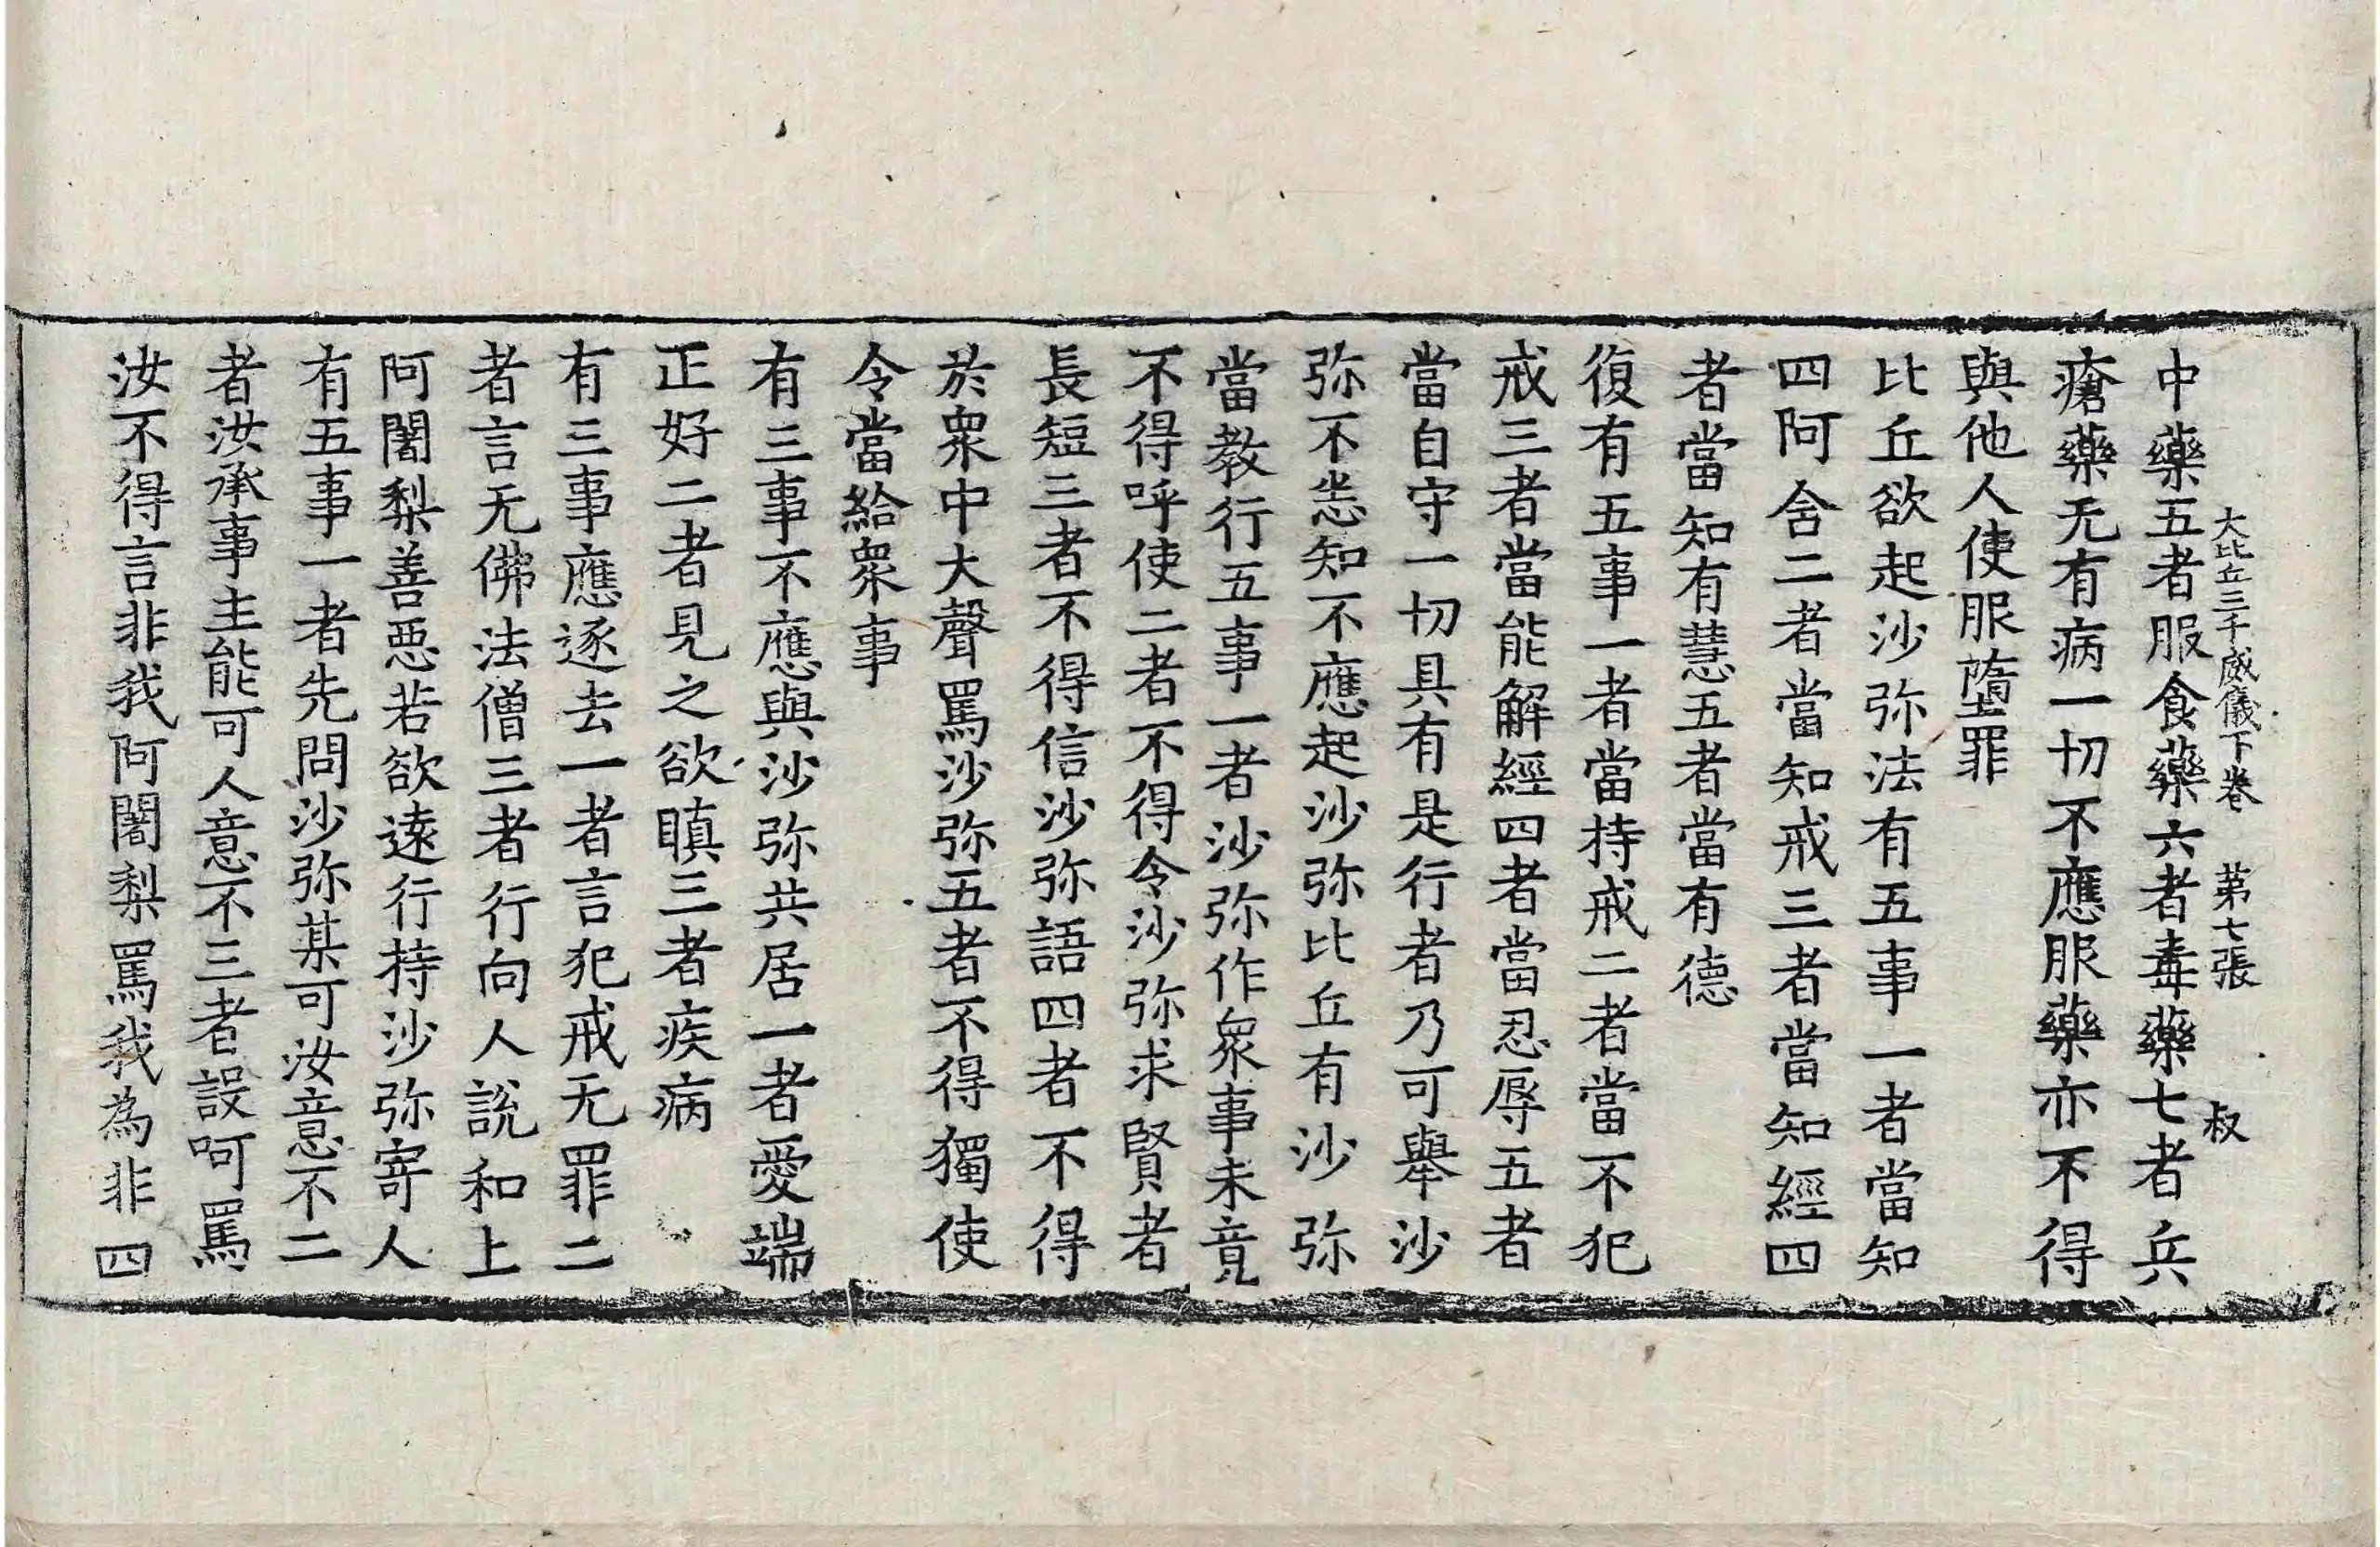 大比丘三千威儀下卷 第七張 叔
中藥五者服食藥六者毒藥七者兵
瘡藥无有病一切不應服藥亦不得
與他人使服墮罪
比丘欲起沙弥法有五事一者當知
四阿含二者當知戒三者當知經四
者當知有慧五者當有德
復有五事一者當持戒二者當不犯
戒三者當能解經四者當忍辱五者
當自守一切具有是行者乃可舉沙
弥不恙知不應起沙弥比丘有沙弥
當教行五事一者沙弥作衆事未竟
不得呼使二者不得令沙弥求賢者
長短三者不得信沙弥語四者不得
於衆中大聲罵沙弥五者不得獨使
令當給衆事
有三事不應與沙弥共居一者愛端
正好二者見之欲瞋三者疾病
有三事應逐去一者言犯戒无罪二
者言无佛法僧三者行向人說和上
阿闍梨善惡若欲遠行持沙弥寄人
有五事一者先問沙弥某可汝意不二
者汝承事主能可人意不三者設呵罵
汝不得言非我阿闍梨罵我為非四